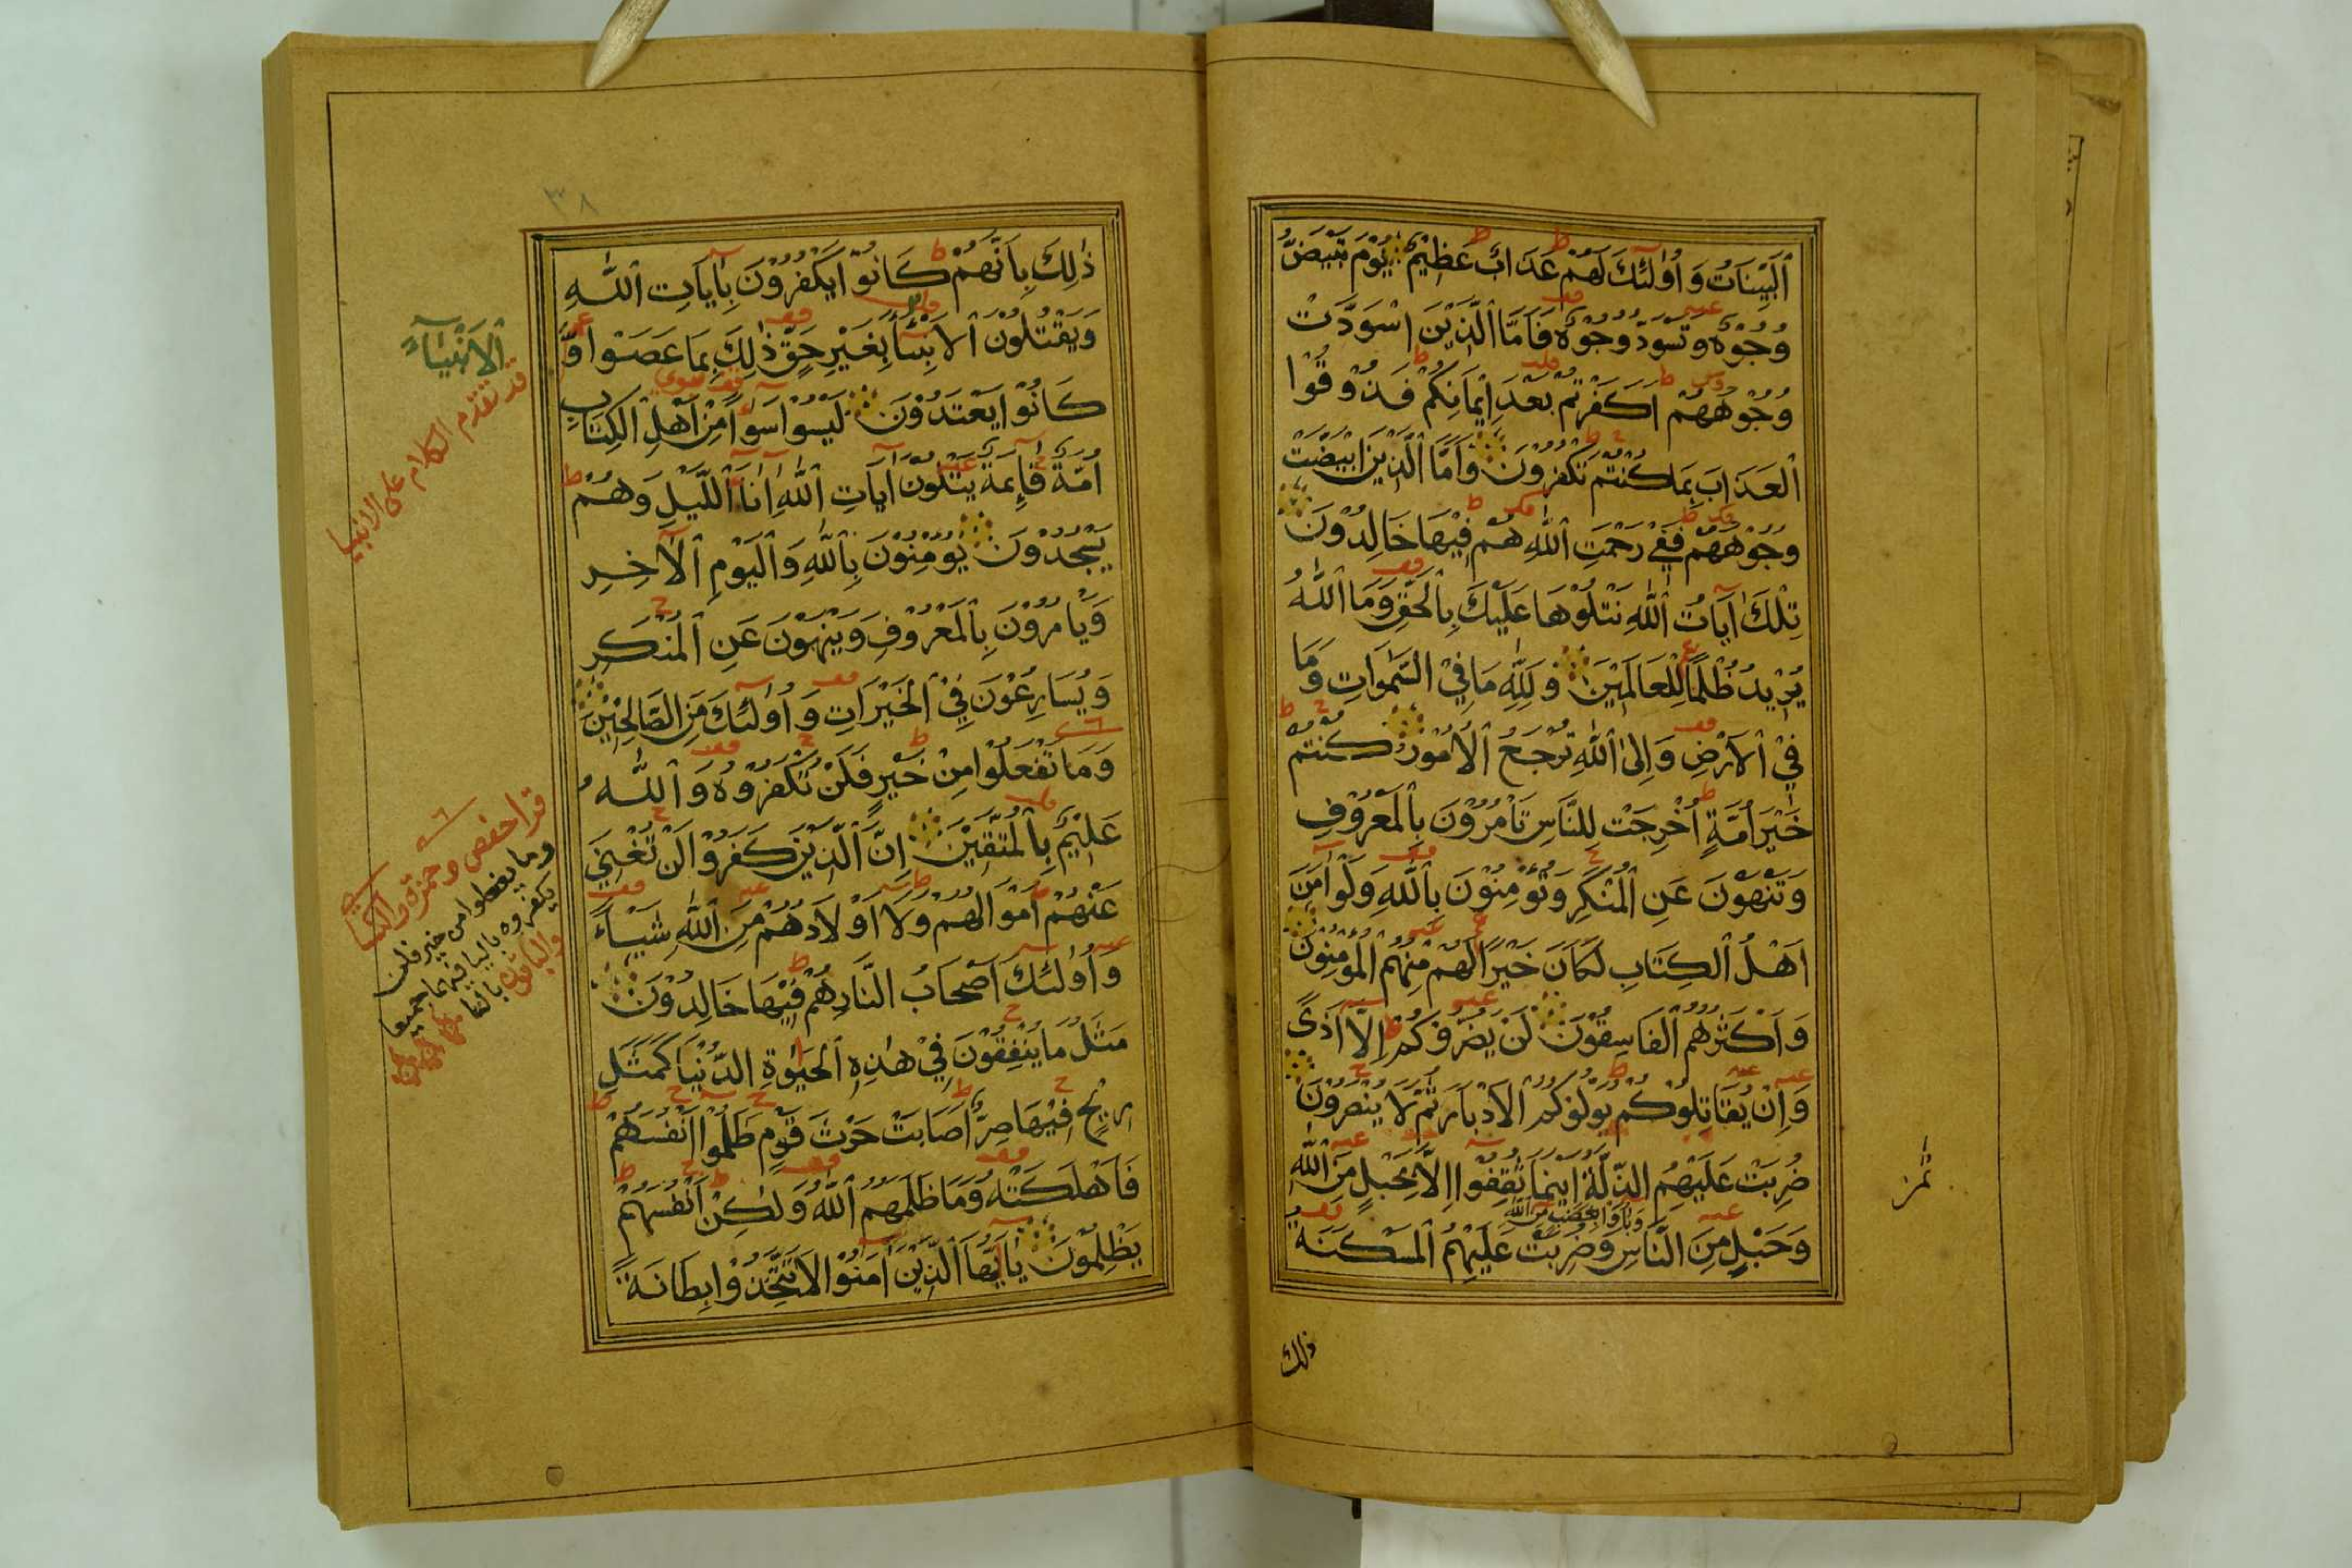 ٱلْبَيِّنَاتُ وَأُولٰئِكَ لَهُمْ عَذَابٌ عَظِيمٌ يَوْمَ تَبْيَضُّ
وُجُوهٌ وَتَسْوَدُّ وُجُوهٌ فَأَمَّا ٱلَّذِينَ اسْوَدَّتْ
وُجُوهُهُمْ اَكَفَرْتُمْ بَعْدَ إِيمَانِكُمْ فَذُوقُوا
ٱلْعَذَابَ بِمَا كُنْتُمْ تَكْفُرُونَ وَأَمَّا ٱلَّذِينَ ابْيَضَّتْ
وُجُوهُهُمْ فَفِي رَحْمَتِ ٱللّٰهِ هُمْ فِيهَا خَالِدُونَ
تِلْكَ اٰيَاتُ ٱللّٰهِ نَتْلُوهَا عَلَيْكَ بِالْحَقِّ وَمَا ٱللّٰهُ
يُرِيدُ ظُلْمًا لِلْعَالَمِينَ وَلِلّٰهِ مَا فِي السَّمٰوَاتِ وَمَا
فِي ٱلْأَرْضِ وَإِلَى ٱللّٰهِ تُرْجَعُ ٱلْأُمُورُ كُنْتُمْ
خَيْرَ أُمَّةٍ أُخْرِجَتْ لِلنَّاسِ تَأْمُرُونَ بِٱلْمَعْرُوفِ
وَتَنْهَوْنَ عَنِ ٱلْمُنْكَرِ وَتُؤْمِنُونَ بِٱللّٰهِ وَلَوْ اٰمَنَ
اَهْلُ ٱلْكِتَابِ لَكَانَ خَيْرًا لَهُمْ مِنْهُمُ ٱلْمُؤْمِنُونَ
وَاَكْثَرُهُمُ ٱلْفَاسِقُونَ لَنْ يَضُرُّوكُمْ إِلَّا أَذًى
وَإِنْ يُقَاتِلُوكُمْ يُوَلُّوكُمُ ٱلْأَدْبَارَ ثُمَّ لَا يُنْصَرُونَ
ضُرِبَتْ عَلَيْهِمُ الذِّلَّةُ أَيْنَمَا ثُقِفُوا إِلَّا بِحَبْلٍ مِنَ ٱللّٰهِ
وَبَاؤُا بِغَضَبٍ مِنَ ٱللّٰهِ
وَحَبْلٍ مِنَ النَّاسِ وَضُرِبَتْ عَلَيْهِمُ ٱلْمَسْكَنَةُ
ذلك
٣٨
ذٰلِكَ بِأَنَّهُمْ كَانُوا يَكْفُرُونَ بِاٰيَاتِ ٱللّٰهِ
وَيَقْتُلُونَ ٱلْأَنْبِئَآءَ بِغَيْرِ حَقٍّ ذٰلِكَ بِمَا عَصَوْا وَّ
كَانُوا يَعْتَدُونَ لَيْسُوا سَوَآءً مِنْ أَهْلِ ٱلْكِتَابِ
أُمَّةٌ قَآئِمَةٌ يَتْلُونَ اٰيَاتِ ٱللّٰهِ اٰنَآءَ ٱللَّيْلِ وَهُمْ
يَسْجُدُونَ يُؤْمِنُونَ بِٱللّٰهِ وَٱلْيَوْمِ ٱلْاٰخِرِ
وَيَأْمُرُونَ بِٱلْمَعْرُوفِ وَيَنْهَوْنَ عَنِ ٱلْمُنْكَرِ
وَيُسَارِعُونَ فِي ٱلْخَيْرَاتِ وَأُولٰئِكَ مِنَ الصَّالِحِينَ
وَمَا تَفْعَلُوا مِنْ خَيْرٍ فَلَنْ تُكْفَرُوهُ وَٱللّٰهُ
عَلِيمٌ بِٱلْمُتَّقِينَ إِنَّ ٱلَّذِينَ كَفَرُوا لَنْ تُغْنِيَ
عَنْهُمْ أَمْوَالُهُمْ وَلَا أَوْلَادُهُمْ مِنَ ٱللّٰهِ شَيْـًٔا
وَأُولٰئِكَ أَصْحَابُ النَّارِ هُمْ فِيهَا خَالِدُونَ
مَثَلُ مَا يُنْفِقُونَ فِي هٰذِهِ ٱلْحَيٰوةِ الدُّنْيَا كَمَثَلِ
رِيحٍ فِيهَا صِرٌّ أَصَابَتْ حَرْثَ قَوْمٍ ظَلَمُوا أَنْفُسَهُمْ
فَأَهْلَكَتْهُ وَمَا ظَلَمَهُمُ ٱللّٰهُ وَلٰكِنْ أَنْفُسَهُمْ
يَظْلِمُونَ يَا أَيُّهَا ٱلَّذِينَ اٰمَنُوا لَا تَتَّخِذُوا بِطَانَةً
ٱلْأَنْبِيَآءَ
قد تقدم الكلام على الانبيا
قرا حفص وحمزة والكسا
وما يفعلوا من خير فلن
يكفروه باليا فيهما جميعا
والباقون بالتا